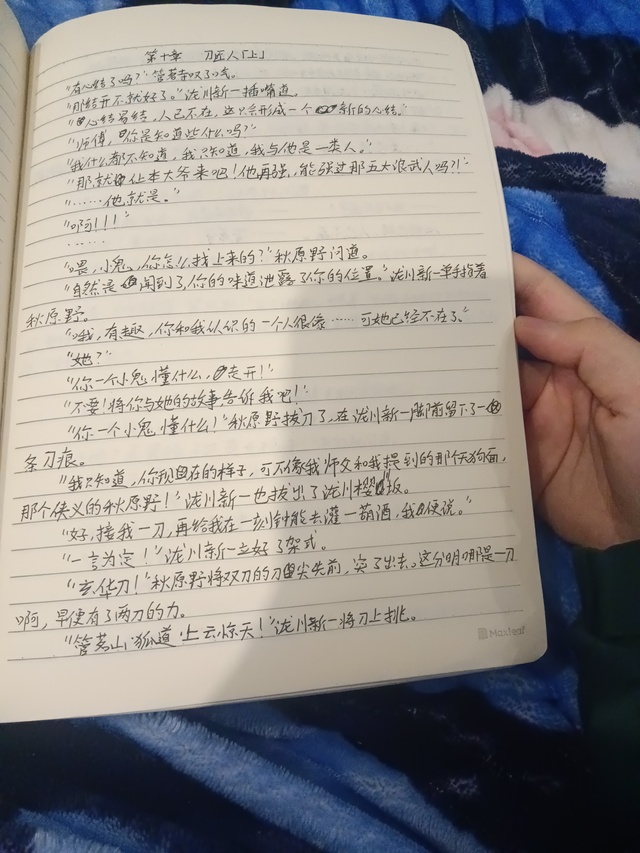 第十章 刀匠人「上」
“有心结了吗?”管茗寺叹了口气。
“那结开不就好了。”泷川新一插嘴道。
“心结易结,人已不在,这只会形成一个新的心结。”
“师傅,你是知道些什么吗?”
“我什么都不知道,我只知道,我与他是一类人。”
“那就让本大爷来吧!他再强,能强过那五大浪武人吗?!”
“……他就是。”
“啊!!!”
……
“喂,小鬼,你怎么找上来的?”秋原野问道。
“自然是闻到了,你的味道泄露了你的位置。”泷川新一单手指着
秋原野。
“哦,有趣,你和我认识的一个人很像……可她已经不在了。”
“她?”
“你一个小鬼懂什么,走开!”
“不要!将你与她的故事告诉我吧!”
“你一个小鬼,懂什么!”秋原野拔刀了,在泷川新一脚前留下了一
条刀痕。
“我只知道,你现在的样子,可不像我师父和我提到的那个天狗面,
那个侠义的秋原野!”泷川新一也拔出了泷川樱坂。
“好,接我一刀,再给我在一刻钟能去灌一葫酒,我便说。”
“一言为定!”泷川新一立好了架式。
“玄华刀!”秋原野将双刀的刀尖先前,突了出去,这分明哪是一刀
啊,早便有了两刀的力。
“管茗山狐道·上云惊天!”泷川新一将刀上挑。
Maxleaf